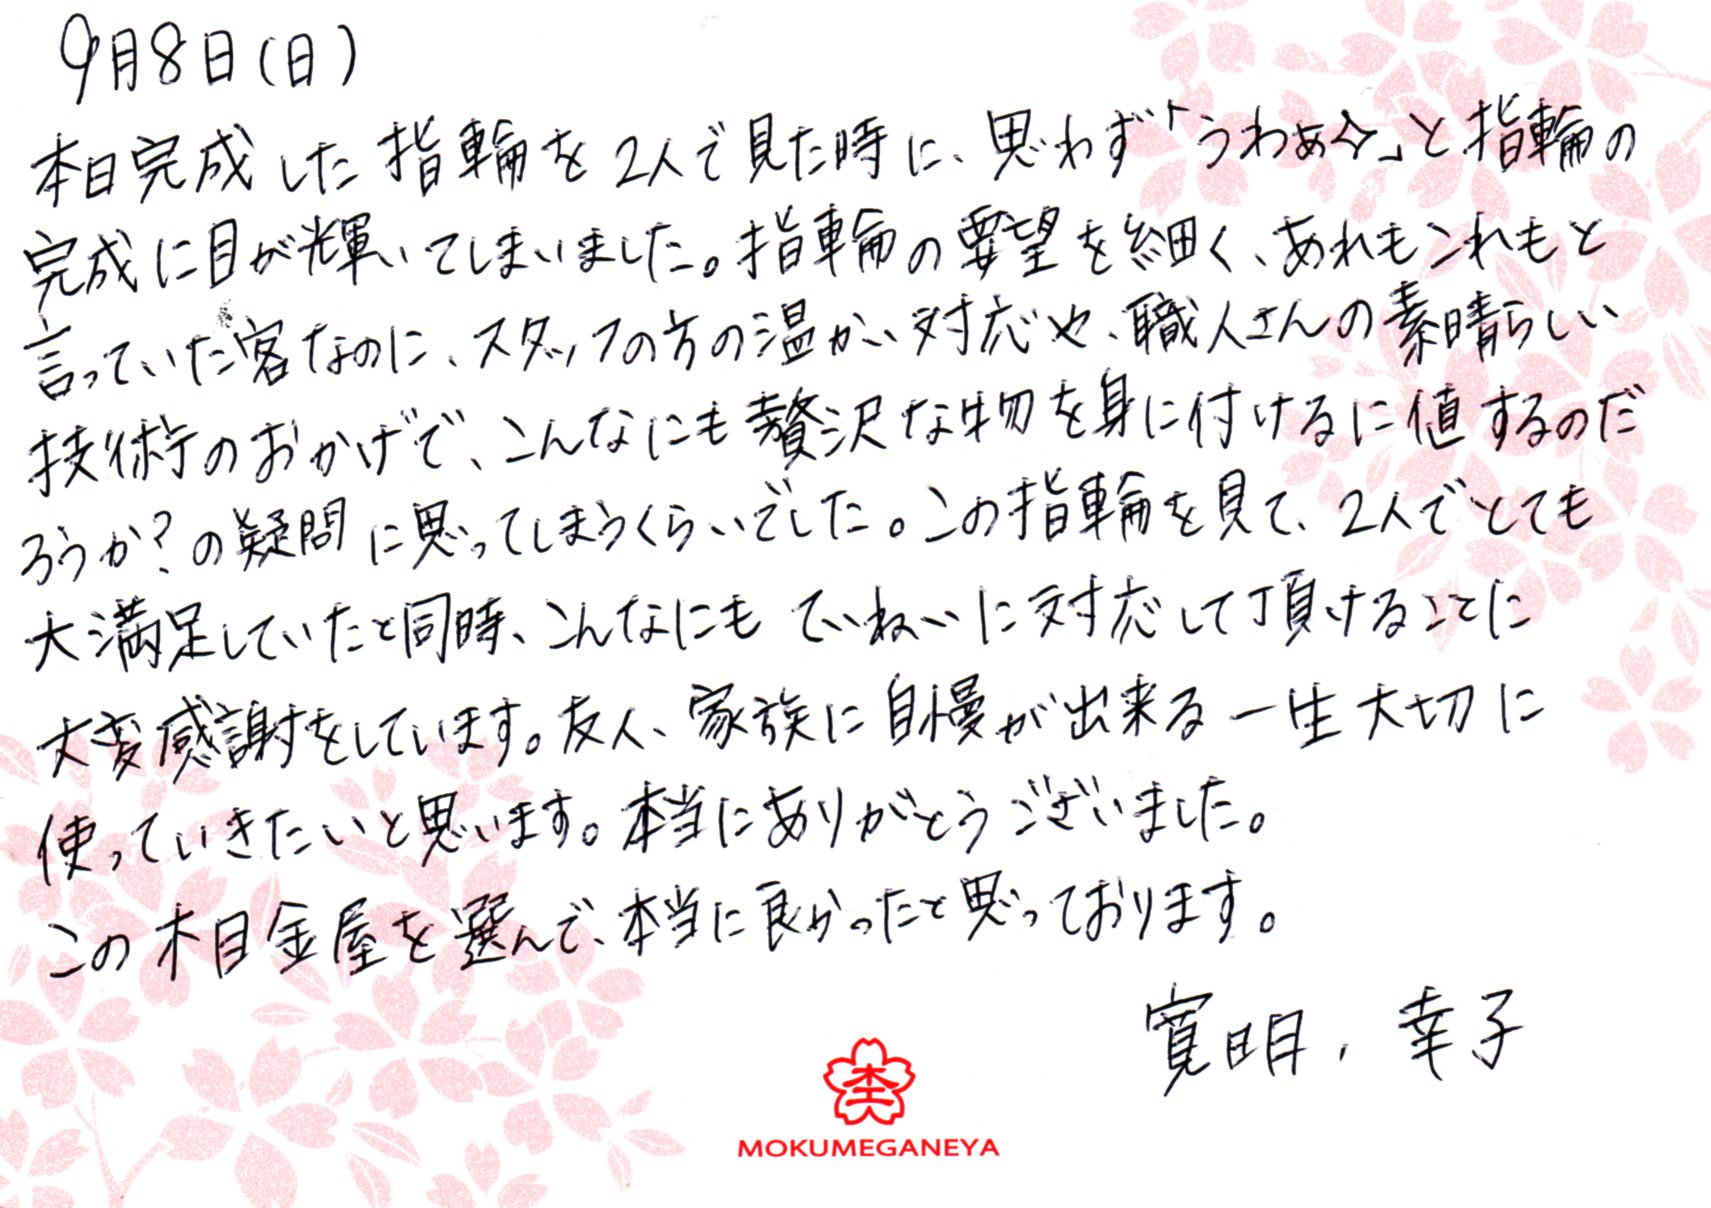 9月8日(日)
本日完成した指輪を2人で見た時に、思わず「うわぁ☆」と指輪の
完成に目が輝いてしまいました。指輪の要望を細く、あれもこれもと
言っていた客なのに、スタッフの方の温かい対応や、職人さんの素晴らしい
技術のおかげで、こんなにも贅沢な物を身に付けるに値するのだ
ろうか?の疑問に思ってしまうくらいでした。この指輪を見て、2人でとても
大満足していたと同時、こんなにもていねいに対応して頂けることに
大変感謝をしています。友人、家族に自慢が出来る一生大切に
使っていきたいと思います。本当にありがとうございました。
この木目金屋を選んで、本当に良かったと思っております。
寛明、幸子
MOKUMEGANEYA